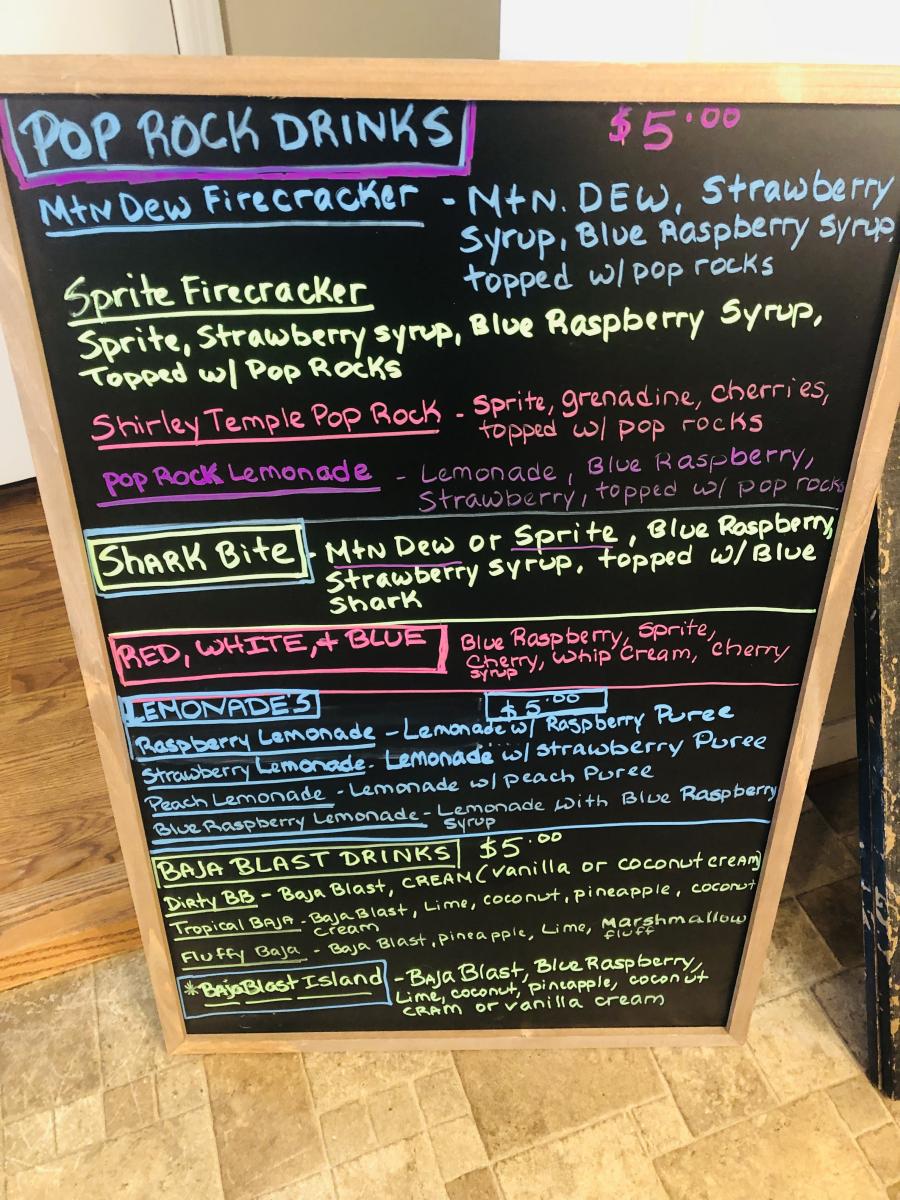 POP ROCK DRINKS $5.00
Mtn Dew Firecracker - Mtn. DEW, Strawberry
Syrup, Blue Raspberry Syrup,
topped w/ pop rocks
Sprite Firecracker
Sprite, Strawberry syrup, Blue Raspberry Syrup,
Topped w/ Pop Rocks
Shirley Temple Pop Rock - Sprite, grenadine, cherries,
topped w/ pop rocks
Pop Rock Lemonade - Lemonade, Blue Raspberry,
Strawberry, topped w/ pop rocks
Shark Bite - Mtn Dew or Sprite, Blue Raspberry,
Strawberry syrup, topped w/ Blue
Shark
RED, WHITE, + BLUE Blue Raspberry, Sprite,
Cherry, Whip Cream, cherry
syrup
LEMONADE'S $5.00
Raspberry Lemonade - Lemonade w/ Raspberry Puree
Strawberry Lemonade - Lemonade w/ strawberry Puree
Peach Lemonade - Lemonade w/ peach Puree
Blue Raspberry Lemonade - Lemonade with Blue Raspberry
Syrup
BAJA BLAST DRINKS $5.00
Dirty BB - Baja Blast, CREAM (vanilla or coconut cream)
Tropical BAJA - Baja Blast, Lime, coconut, pineapple, coconut
Cream
Fluffy Baja - Baja Blast, pineapple, Lime, Marshmallow
fluff
*Baja Blast Island - BAJA Blast, Blue Raspberry,
Lime, coconut, pineapple, coconut
CRAM or vanilla cream